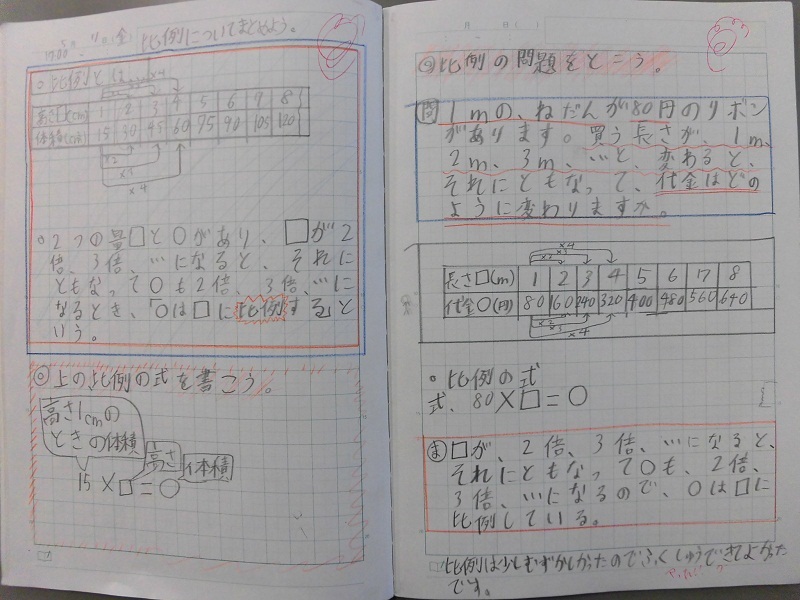 比例についてまとめよう。
○比例とは
×4
高さ□(cm) 1 2 3 4 5 6 7 8
体積○(cm) 15 30 45 60 75 90 105 120
×2
×3
×4
○2つの量□と○があり、□が2
倍、3倍、…になると、それに
ともなって○も2倍、3倍、…に
なるとき、「○は□に比例する」と
いう。
◎上の比例の式を書こう。
高さ1cmの
ときの体積
高さ
体積
15×□=○
比例の問題をとこう。
問 1mの、ねだんが80円のリボン
があります。買う長さが、1m、
2m、3m、…と、変わると、
それにともなって、代金はどの
ように変わりますか。
×4
×3
×2
長さ□(m) 1 2 3 4 5 6 7 8
代金○(円) 80 160 240 320 400 480 560 640
×2
×3
×4
○比例の式
式、80×□=○
ま □が、2倍、3倍、…になると、
それにともなって○も、2倍、
3倍、…になるので、○は□に
比例している。
比例は少しむずかしかったのでふくしゅうできてよかった
です。